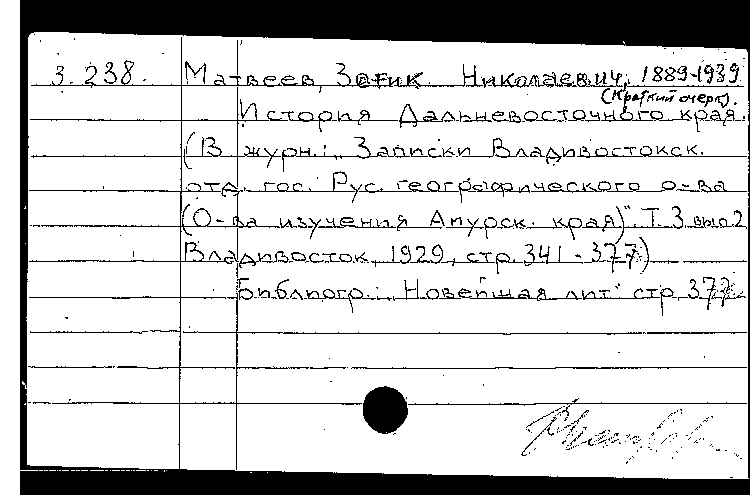 3.238. Матвеев, Зотик Николаевич, 1889-1939
(Краткий очерк).
История Дальневосточного края.
(В журн.: „Записки Владивостокск.
отд. гос. Рус. географического о-ва
(О-ва изучения Амурск. края)". Т. 3 вып 2
Владивосток, 1929, стр. 341-377)
Библиогр.: „Новейшая лит" стр. 377